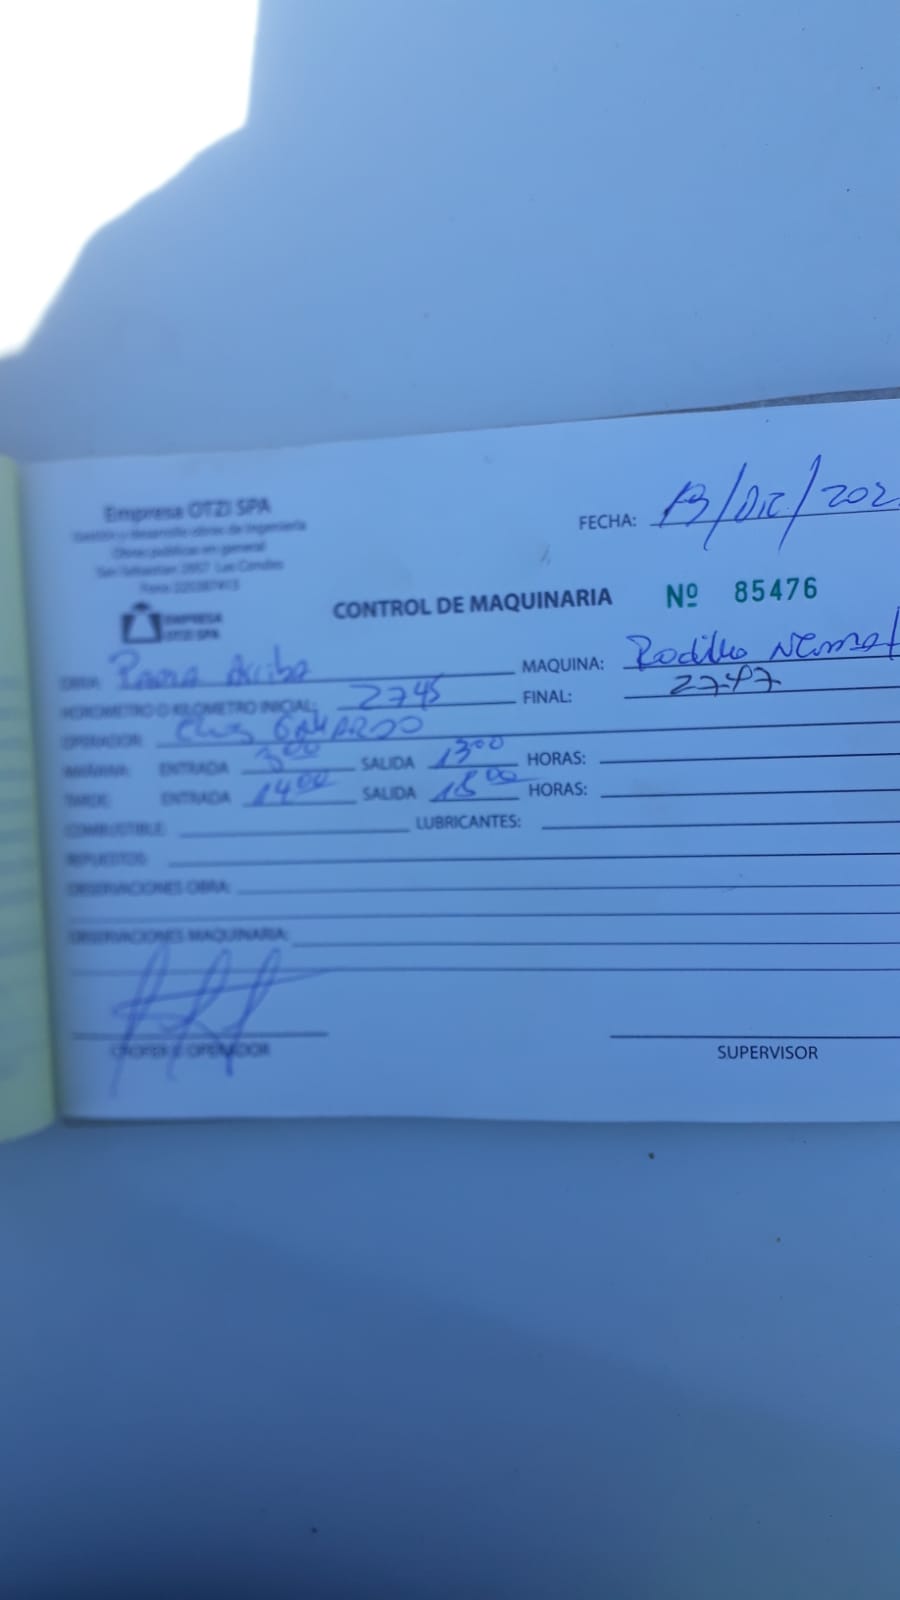 Empresa OTZI SPA
Gestión y desarrollo obras de Ingeniería
Obras publicas en general
San Sebastian 2807 Las Condes
EMPRESA
OTZI SPA
FECHA: 13/Dic/202
CONTROL DE MAQUINARIA Nº 85476
OBRA: Arriba MAQUINA: Rodillo
HOROMETRO O KILOMETRO INICIAL: 2745 FINAL: 2747
OPERADOR: GALLARDO
MAÑANA: ENTRADA SALIDA 1300 HORAS:
TARDE: ENTRADA 1400 SALIDA 1800 HORAS:
COMBUSTIBLE: LUBRICANTES:
REPUESTOS:
OBSERVACIONES OBRA:
OBSERVACIONES MAQUINARIA:
CHOFER U OPERADOR SUPERVISOR